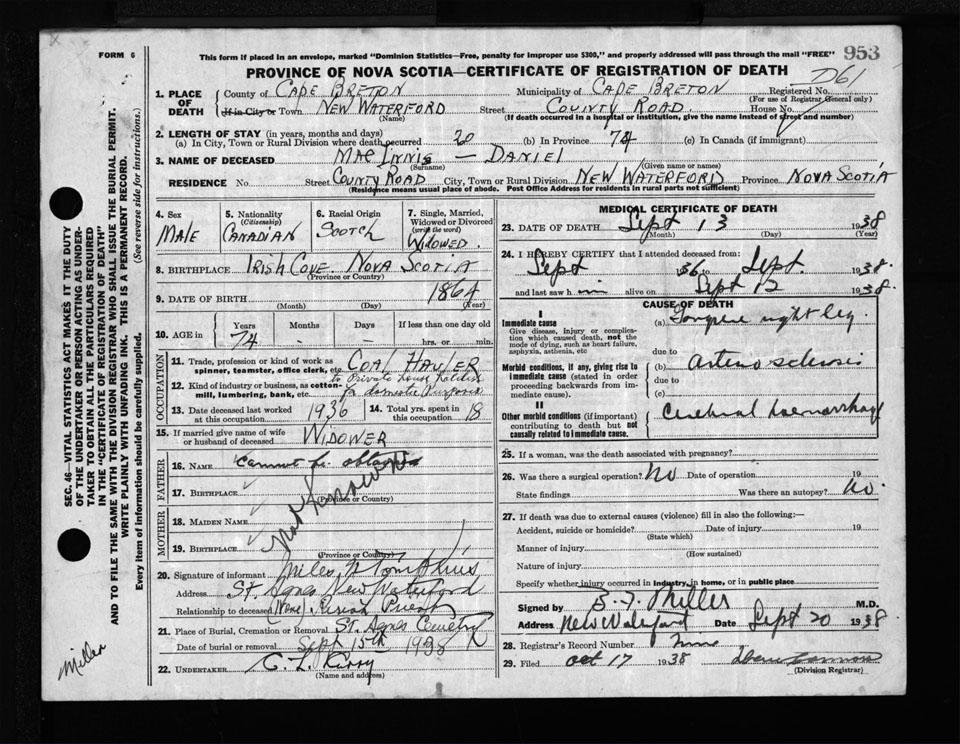 FORM 6
This form if placed in an envelope, marked "Dominion Statistics—Free, penalty for improper use $300," and properly addressed will pass through the mail "FREE"
953
PROVINCE OF NOVA SCOTIA—CERTIFICATE OF REGISTRATION OF DEATH
D61
1. PLACE OF DEATH
County of CAPE BRETON Municipality of CAPE BRETON Registered No.
(For use of Registrar General only)
If in City or Town NEW WATERFORD Street COUNTY ROAD. House No.
(Name) (If death occurred in a hospital or institution, give the name instead of street and number)
2. LENGTH OF STAY (in years, months and days)
(a) In City, Town or Rural Division where death occurred 20 (b) In Province 74 (c) In Canada (if immigrant)
3. NAME OF DECEASED MAC INNIS — DANIEL
(Surname) (Given name or names)
RESIDENCE No. Street COUNTY ROAD City, Town or Rural Division NEW WATERFORD Province NOVA SCOTIA
(Residence means usual place of abode. Post Office Address for residents in rural parts not sufficient)
4. Sex MALE
5. Nationality (Citizenship) CANADIAN
6. Racial Origin SCOTCH
7. Single, Married, Widowed or Divorced (write the word) WIDOWED.
8. BIRTHPLACE IRISH COVE NOVA SCOTIA
(Province or Country)
9. DATE OF BIRTH 1864
(Month) (Day) (Year)
10. AGE in Years 74 Months - Days - If less than one day old hrs. or min.
OCCUPATION
11. Trade, profession or kind of work as spinner, teamster, office clerk, etc. COAL HAULER
12. Kind of industry or business, as cotton-mill, lumbering, bank, etc. to Private house holders for domestic purposes
13. Date deceased last worked at this occupation 1936
14. Total yrs. spent in this occupation 18
15. If married give name of wife or husband of deceased WIDOWER
FATHER
16. NAME cannot be obtained
17. BIRTHPLACE
(Province or Country)
Not Known
MOTHER
18. MAIDEN NAME
19. BIRTHPLACE
(Province or Country)
20. Signature of informant Miles P Tompkins
Address St. Agnes New Waterford
Relationship to deceased (None) Parish Priest
21. Place of Burial, Cremation or Removal St. Agnes Cemetery
Date of burial or removal Sept 15th 1938
22. UNDERTAKER
(Name and address)
MEDICAL CERTIFICATE OF DEATH
23. DATE OF DEATH Sept 13 1938
(Month) (Day) (Year)
24. I HEREBY CERTIFY that I attended deceased from:
Sept 1936 to Sept. 1938.
and last saw him alive on Sept 12 1938.
CAUSE OF DEATH
I
Immediate cause
Give disease, injury or complication which caused death, not the mode of dying, such as heart failure, asphyxia, asthenia, etc
(a) Gangrene right leg.
due to
Morbid conditions, if any, giving rise to immediate cause (stated in order proceeding backwards from immediate cause).
(b) Arterio sclerosis
due to
(c)
II
Other morbid conditions (if important) contributing to death but not causally related to immediate cause.
Cerebral haemorrhage
25. If a woman, was the death associated with pregnancy?
26. Was there a surgical operation? No Date of operation 19
State findings Was there an autopsy? No.
27. If death was due to external causes (violence) fill in also the following:—
Accident, suicide or homicide? Date of injury 19
(State which)
Manner of injury
(How sustained)
Nature of injury
Specify whether injury occurred in industry, in home, or in public place
Signed by Miller M.D.
Address New Waterford Date Sept 20 1938
28. Registrar's Record Number
29. Filed Oct 17 1938
(Division Registrar)
SEC. 46—VITAL STATISTICS ACT MAKES IT THE DUTY OF THE UNDERTAKER OR PERSON ACTING AS UNDERTAKER TO OBTAIN ALL THE PARTICULARS REQUIRED IN THE "CERTIFICATE OF REGISTRATION OF DEATH" AND TO FILE THE SAME WITH THE DIVISION REGISTRAR WHO SHALL ISSUE THE BURIAL PERMIT.
WRITE PLAINLY WITH UNFADING INK. THIS IS A PERMANENT RECORD.
Every item of information should be carefully supplied. (See reverse side for instructions.)
Miller